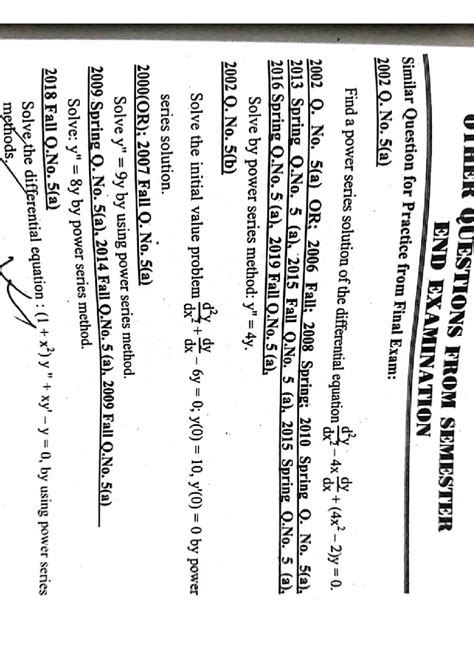 OTHER QUESTIONS FROM SEMESTER
END EXAMINATION
Similar Question for Practice from Final Exam:
2002 Q. No. 5(a)
Find a power series solution of the differential equation d²y/dx² − 4x dy/dx + (4x² − 2)y = 0.
2002 Q. No. 5(a) OR; 2006 Fall; 2008 Spring; 2010 Spring Q. No. 5(a),
2013 Spring Q.No. 5 (a), 2015 Fall Q.No. 5 (a), 2015 Spring Q.No. 5 (a),
2016 Spring Q.No. 5 (a), 2019 Fall Q.No. 5 (a),
Solve by power series method: y" = 4y.
2002 Q. No. 5(b)
Solve the initial value problem d²y/dx² + dy/dx − 6y = 0; y(0) = 10, y'(0) = 0 by power
series solution.
2000(OR); 2007 Fall Q. No. 5(a)
Solve y" = 9y by using power series method.
2009 Spring Q. No. 5(a), 2014 Fall Q.No. 5 (a), 2009 Fall Q.No. 5(a)
Solve: y" = 8y by power series method.
2018 Fall Q.No. 5(a)
Solve the differential equation : (1 + x²) y " + xy' − y = 0, by using power series
methods.